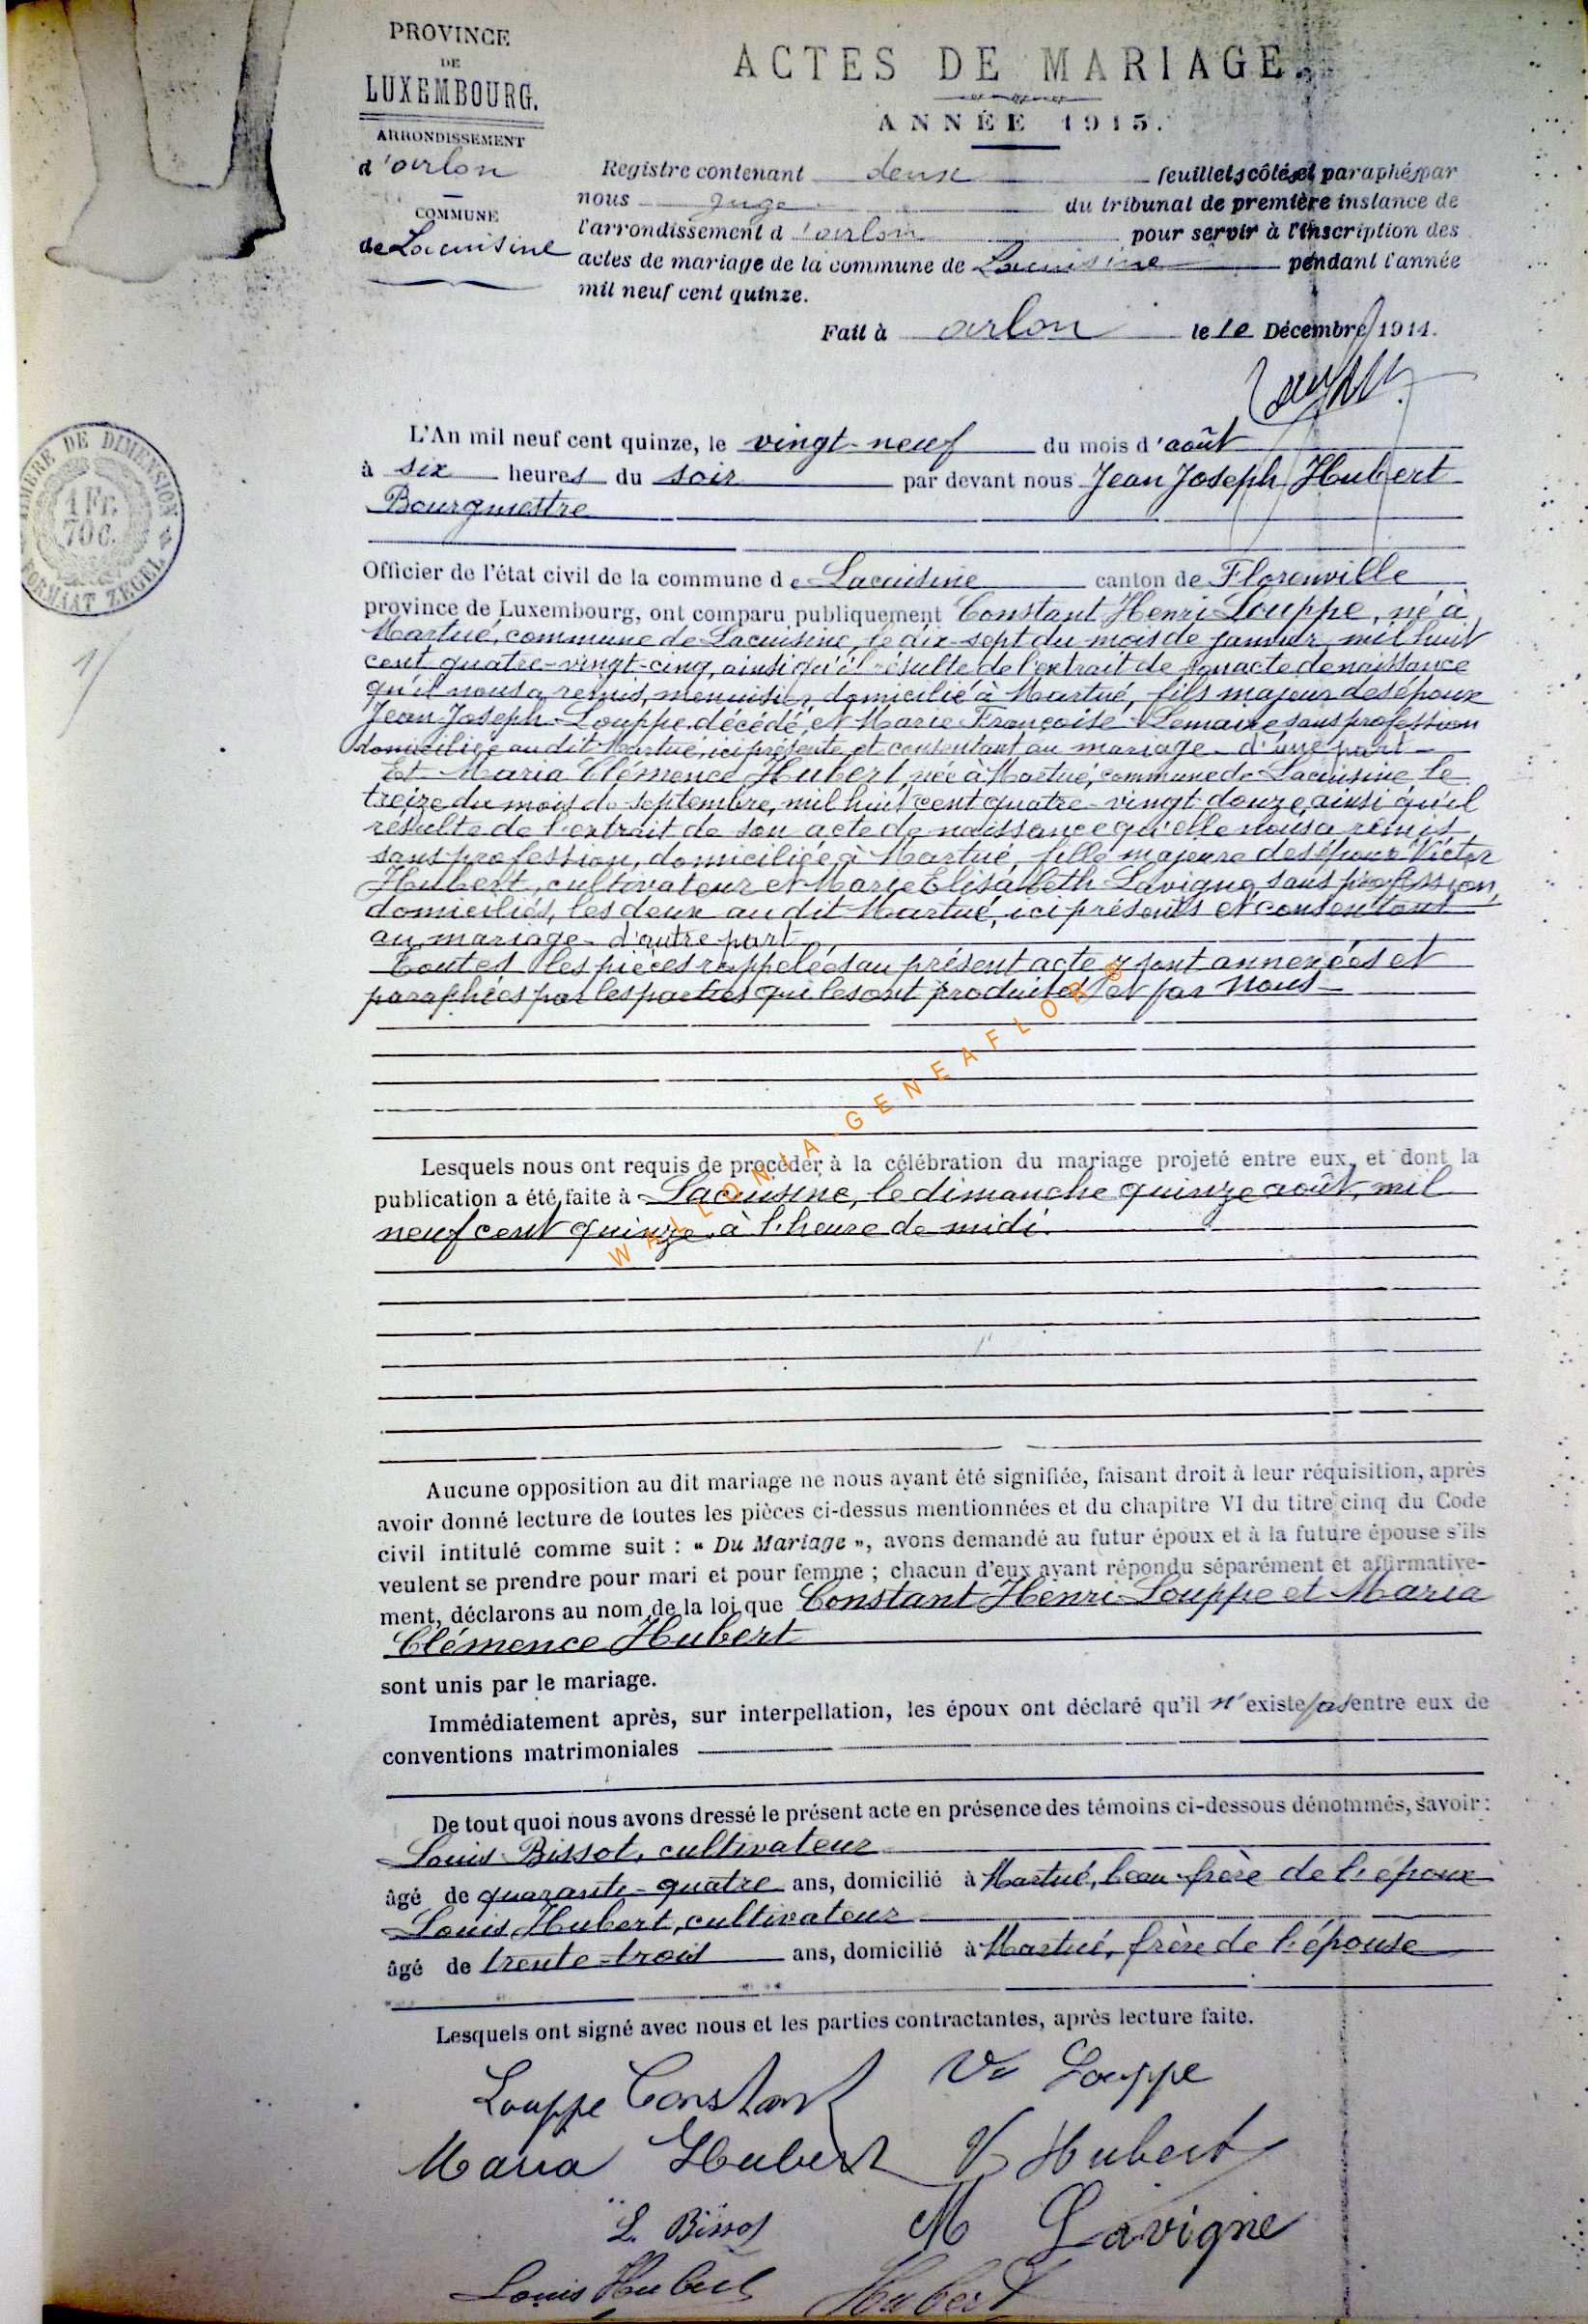 PROVINCE
DE
LUXEMBOURG.
ARRONDISSEMENT
d'arlon
COMMUNE
de Lacuisine
ACTES DE MARIAGE.
ANNÉE 1915.
Registre contenant deux feuillets côtés et paraphés par
nous juge du tribunal de première instance de
l'arrondissement d'arlon pour servir à l'inscription des
actes de mariage de la commune de Lacuisine pendant l'année
mil neuf cent quinze.
Fait à arlon le 10 Décembre 1914.
TIMBRE DE DIMENSION
1 Fr.
70 C.
FORMAAT ZEGEL
L'An mil neuf cent quinze, le vingt-neuf du mois d'août
à six heures du soir par devant nous Jean Joseph Hubert
Bourgmestre
Officier de l'état civil de la commune de Lacuisine canton de Florenville
province de Luxembourg, ont comparu publiquement Constant Henri Louppe, né à
Martué, commune de Lacuisine, le dix-sept du mois de janvier mil huit
cent quatre-vingt-cinq, ainsi qu'il résulte de l'extrait de son acte de naissance
qu'il nous a remis, menuisier, domicilié à Martué, fils majeur des époux
Jean-Joseph Louppe, décédé, et Marie Françoise Lemaire sans profession
domiciliée au dit Martué, ici présente et consentant au mariage - d'une part -
Et Maria Clémence Hubert, née à Martué, commune de Lacuisine, le
treize du mois de septembre, mil huit cent quatre-vingt douze, ainsi qu'il
résulte de l'extrait de son acte de naissance qu'elle nous a remis,
sans profession, domiciliée à Martué, fille majeure des époux Victor
Hubert, cultivateur et Marie Elisabeth Lavigne, sans profession,
domiciliés, les deux au dit Martué, ici présents et consentant
au mariage - d'autre part
Toutes les pièces rappelées au présent acte y sont annexées et
paraphées par les parties qui les ont produites et par nous
Lesquels nous ont requis de procéder à la célébration du mariage projeté entre eux, et dont la
publication a été faite à Lacuisine, le dimanche quinze août, mil
neuf cent quinze, à l'heure de midi.
WALLONIA-GENEAFLOR®
Aucune opposition au dit mariage ne nous ayant été signifiée, faisant droit à leur réquisition, après
avoir donné lecture de toutes les pièces ci-dessus mentionnées et du chapitre VI du titre cinq du Code
civil intitulé comme suit : « Du Mariage », avons demandé au futur époux et à la future épouse s'ils
veulent se prendre pour mari et pour femme ; chacun d'eux ayant répondu séparément et affirmative-
ment, déclarons au nom de la loi que Constant Henri Louppe et Maria
Clémence Hubert
sont unis par le mariage.
Immédiatement après, sur interpellation, les époux ont déclaré qu'il n'existe pas entre eux de
conventions matrimoniales
De tout quoi nous avons dressé le présent acte en présence des témoins ci-dessous dénommés, savoir :
Louis Bissot, cultivateur
âgé de quarante-quatre ans, domicilié à Martué, beau-frère de l'époux
Louis Hubert, cultivateur
âgé de trente-trois ans, domicilié à Martué, frère de l'épouse
Lesquels ont signé avec nous et les parties contractantes, après lecture faite.
Louppe Constant Ve Louppe
Maria Hubert V Hubert
L. Bissot M Lavigne
Louis Hubert Hubert